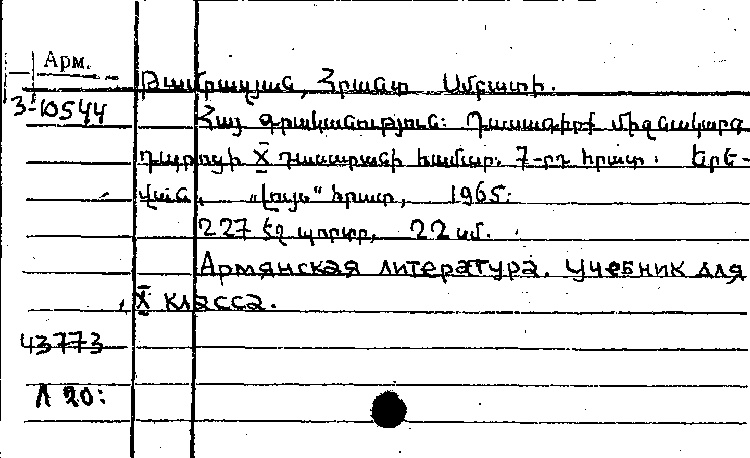 Арм.
Թամրազյան, Հրանտ Սմբատի.
3-10544
Հայ գրականություն: Դասագիրք միջնակարգ
դպրոցի X դասարանի համար. 7-րդ հրատ. Երե-
վան, „Լույս“ հրատ, 1965:
227 էջ պորտր, 22 սմ.
Армянская литература. Учебник для
X класса.
43773
Л 20: